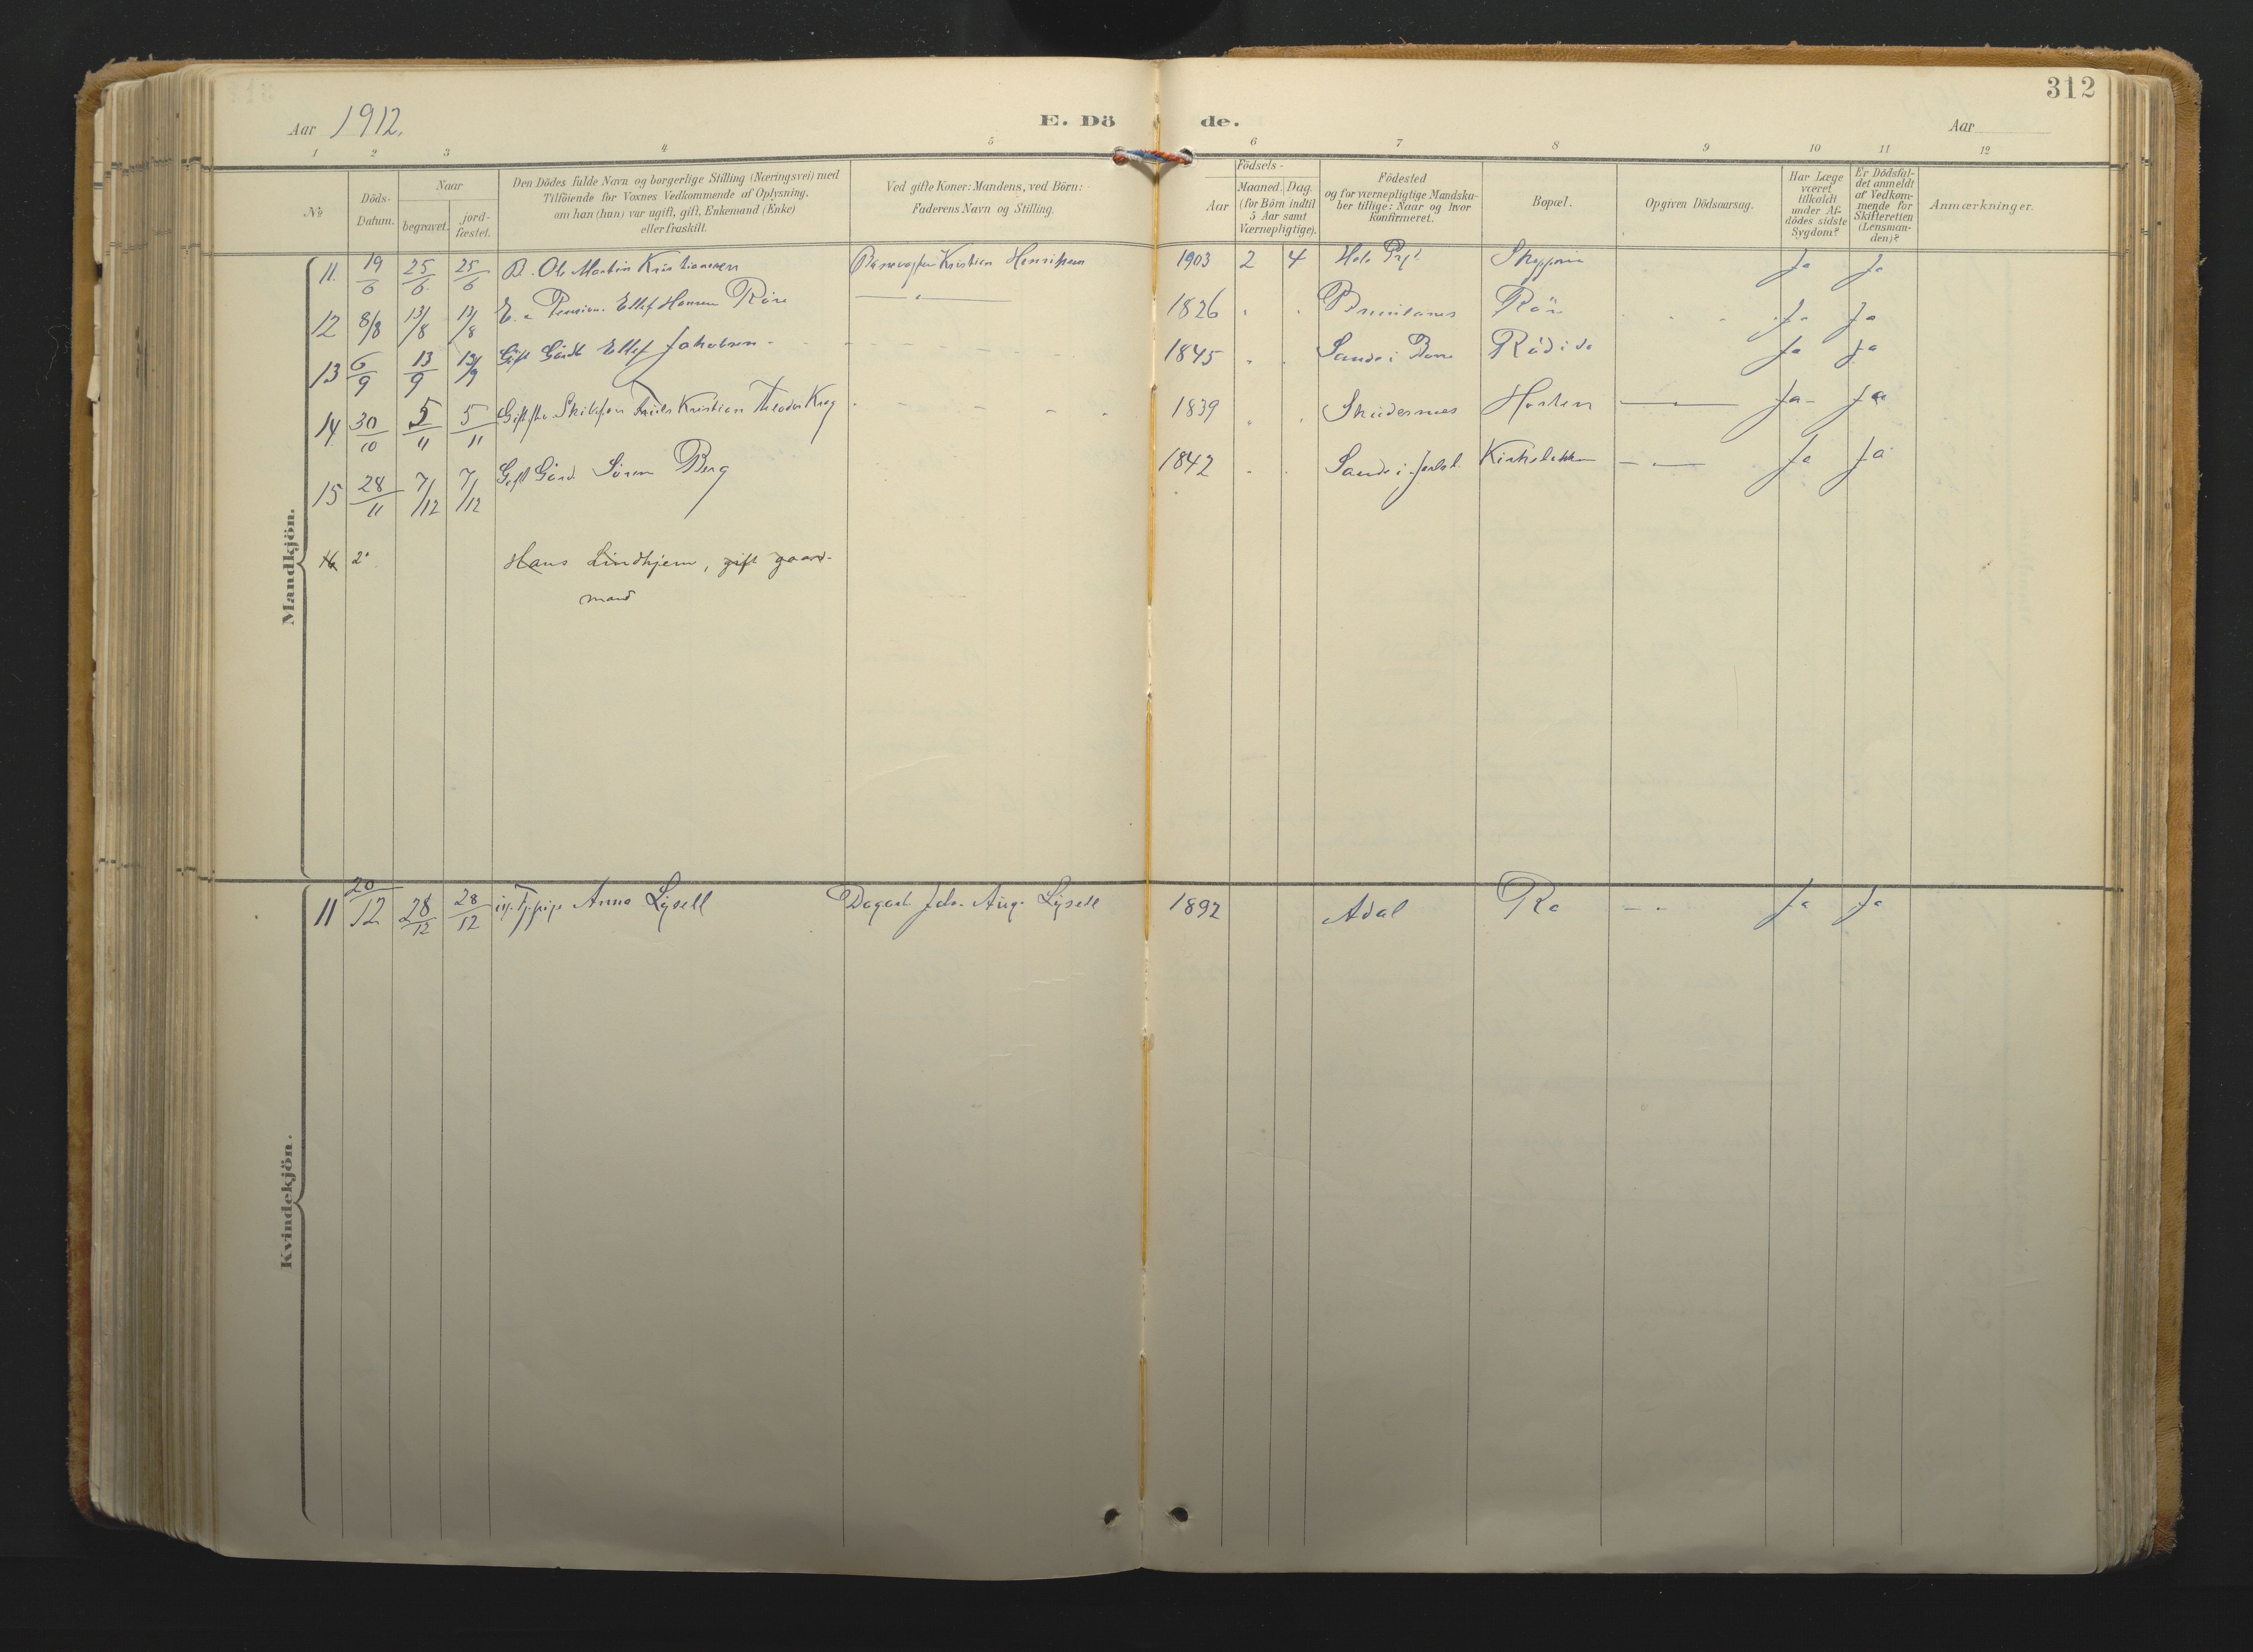 312
Aar 1912.
E. Dö de.
Aar
1 2 3 4 5 6 7 8 9 10 11 12
No
Döds-
Datum.
Naar
begravet.
jord-
fæstet.
Den Dödes fulde Navn og borgerlige Stilling (Næringsvei) med
Tilföiende for Voxnes Vedkommende af Oplysning.
om han (hun) var ugift, gift, Enkemand (Enke)
eller fraskilt.
Ved gifte Koner: Mandens, ved Börn:
Faderens Navn og Stilling.
Födsels-
Aar
Maaned. Dag.
(for Börn indtil
5 Aar samt
Værnepligtige).
Födested
og for værnepligtige Mandska-
ber tillige: Naar og hvor
Konfirmeret.
Bopæl.
Opgiven Dödsaarsag.
Har Læge
været
tilkaldt
under Af-
dödes sidste
Sygdom?
Er Dödsfal-
det anmeldt
af Vedkom-
mende for
Skifteretten
(Lensman-
den)?
Anmærkninger.
Mandkjön.
11. 19/6 25/6 25/6 B. Ole Martin Kristiansen Banevogter Kristian Henriksen 1903 2 4 Hole Ja Ja
12 8/8 13/8 13/8 Ellef Hansen Röre 1826 Ja Ja
13 6/9 13/9 13/9 Gift Ellef Jakobsen 1845 Sande i Ja Ja
14 30/10 5/11 5/11 Kristian Theodor Krog 1839 Skudesnes Horten Ja Ja
15 28/11 7/12 7/12 Gift Gård. Sören Berg 1842 Sande i Jarlsb. Kirkebakken Ja Ja
16 2 Hans Lindhjem, gift gaard-
mand
Kvindekjön.
11 20/12 28/12 28/12 Anna Lysell Dagarb. Joh. Aug. Lysell 1892 Adal Ra Ja Ja